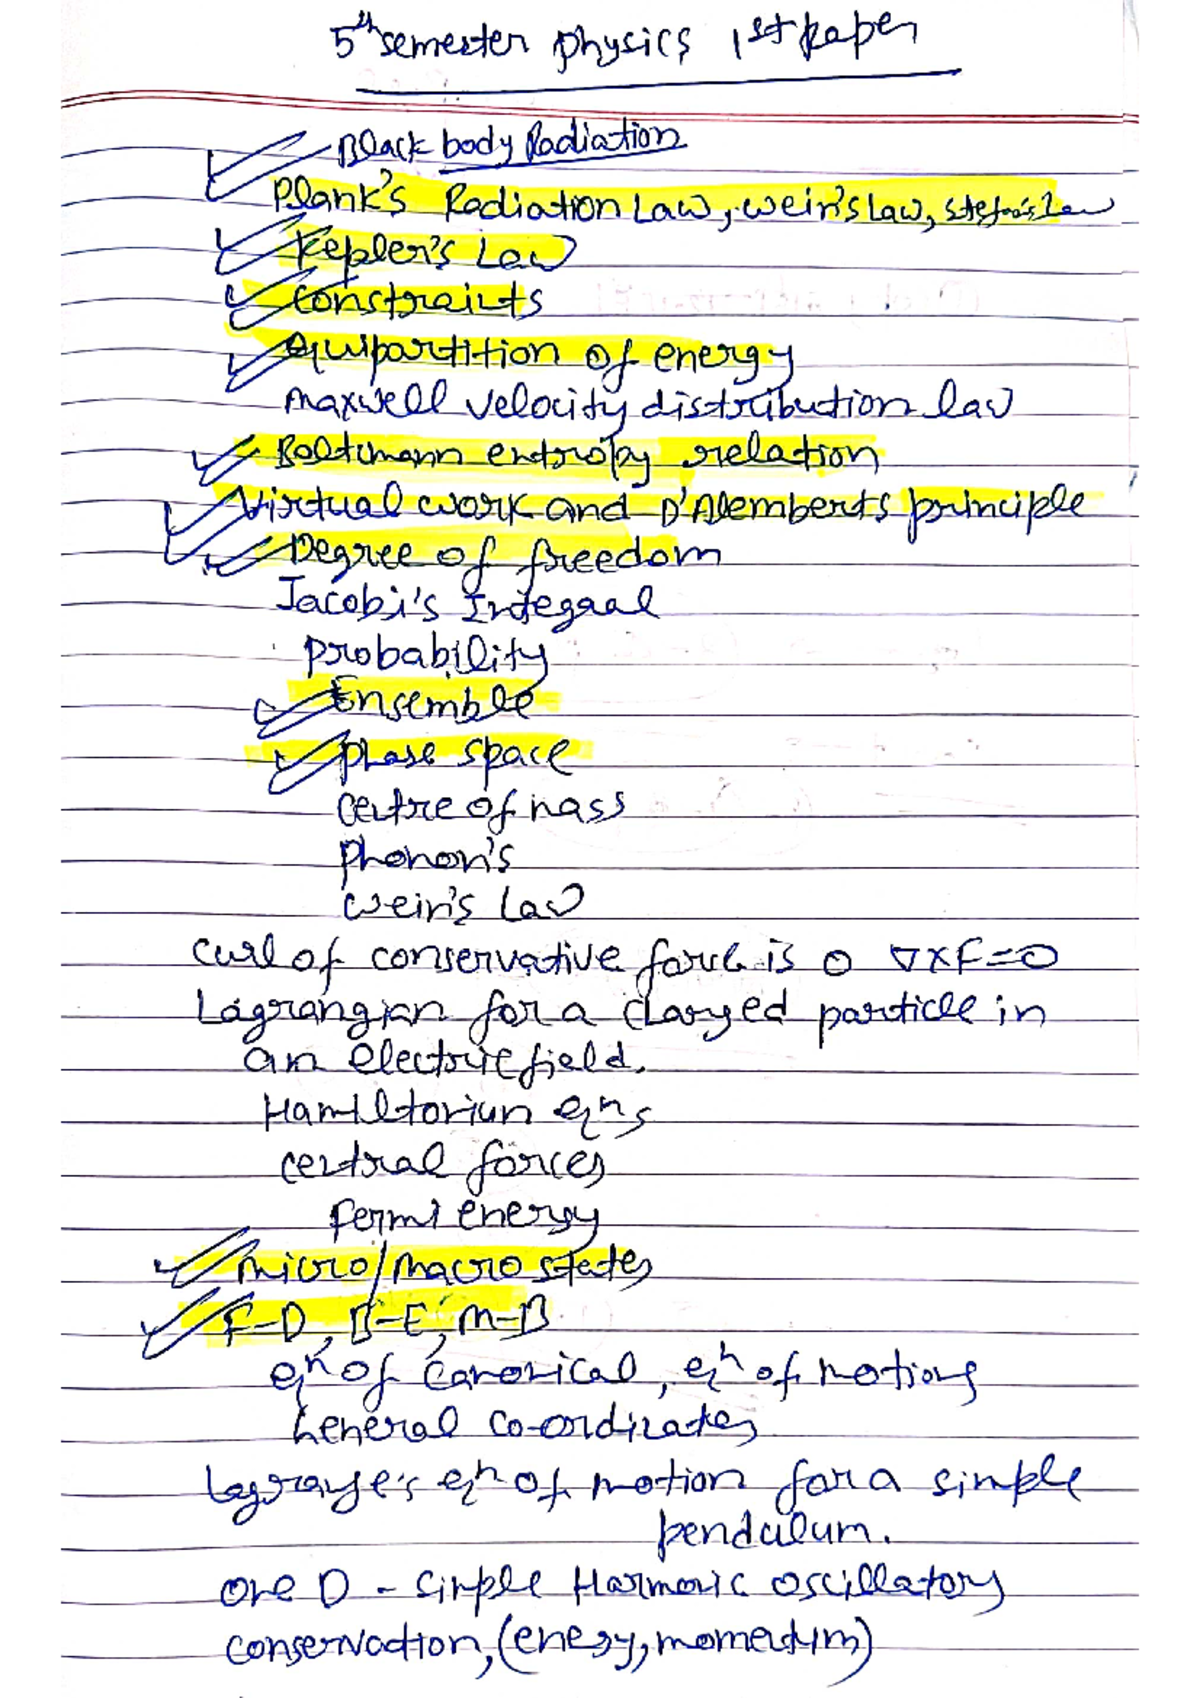 5th semester physics 1st paper
Black body Radiation
Plank's Radiation Law, wein's Law, stefan's Law
Kepler's Law
constraints
equipartition of energy
maxwell velocity distribution law
Boltzmann entropy relation
Virtual work and D'Alemberts principle
Degree of freedom
Jacobi's Integral
probability
Ensemble
phase space
centre of mass
phonon's
wein's Law
curl of conservative force is 0 ∇×F=0
Lagrangian for a charged particle in
an electric field.
Hamiltoniun eqns
central forces
fermi energy
micro/macro states
F-D, B-E, M-B
eqn of canonical, eqn of motions
General co-ordinates
Lagrange's eqn of motion for a simple
pendulum.
one D - simple Harmonic oscillatory
conservation, (enegy, momentum)